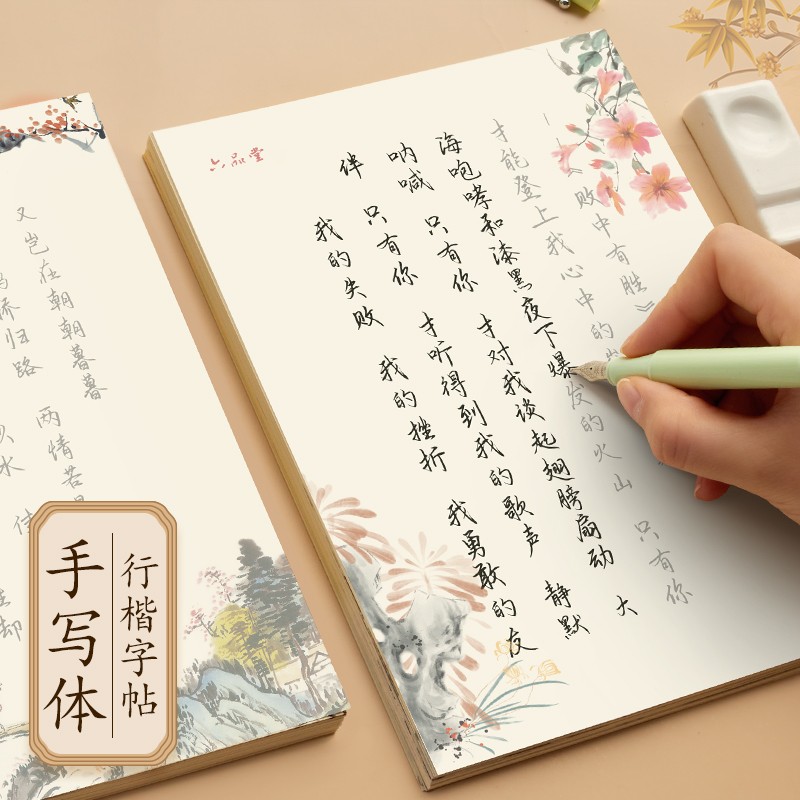 六品堂
我的失败 我的挫折 我勇敢的友
伴 只有你 才听得到我的歌声 静默
呐喊 只有你 才对我谈起翅膀扇动 大
海咆哮和漆黑夜下爆发的火山 只有你
才能登上我心中的
—《败中有胜》
又岂在朝朝暮暮
桥归路 两情若
水 佳
却
手写体
行楷字帖